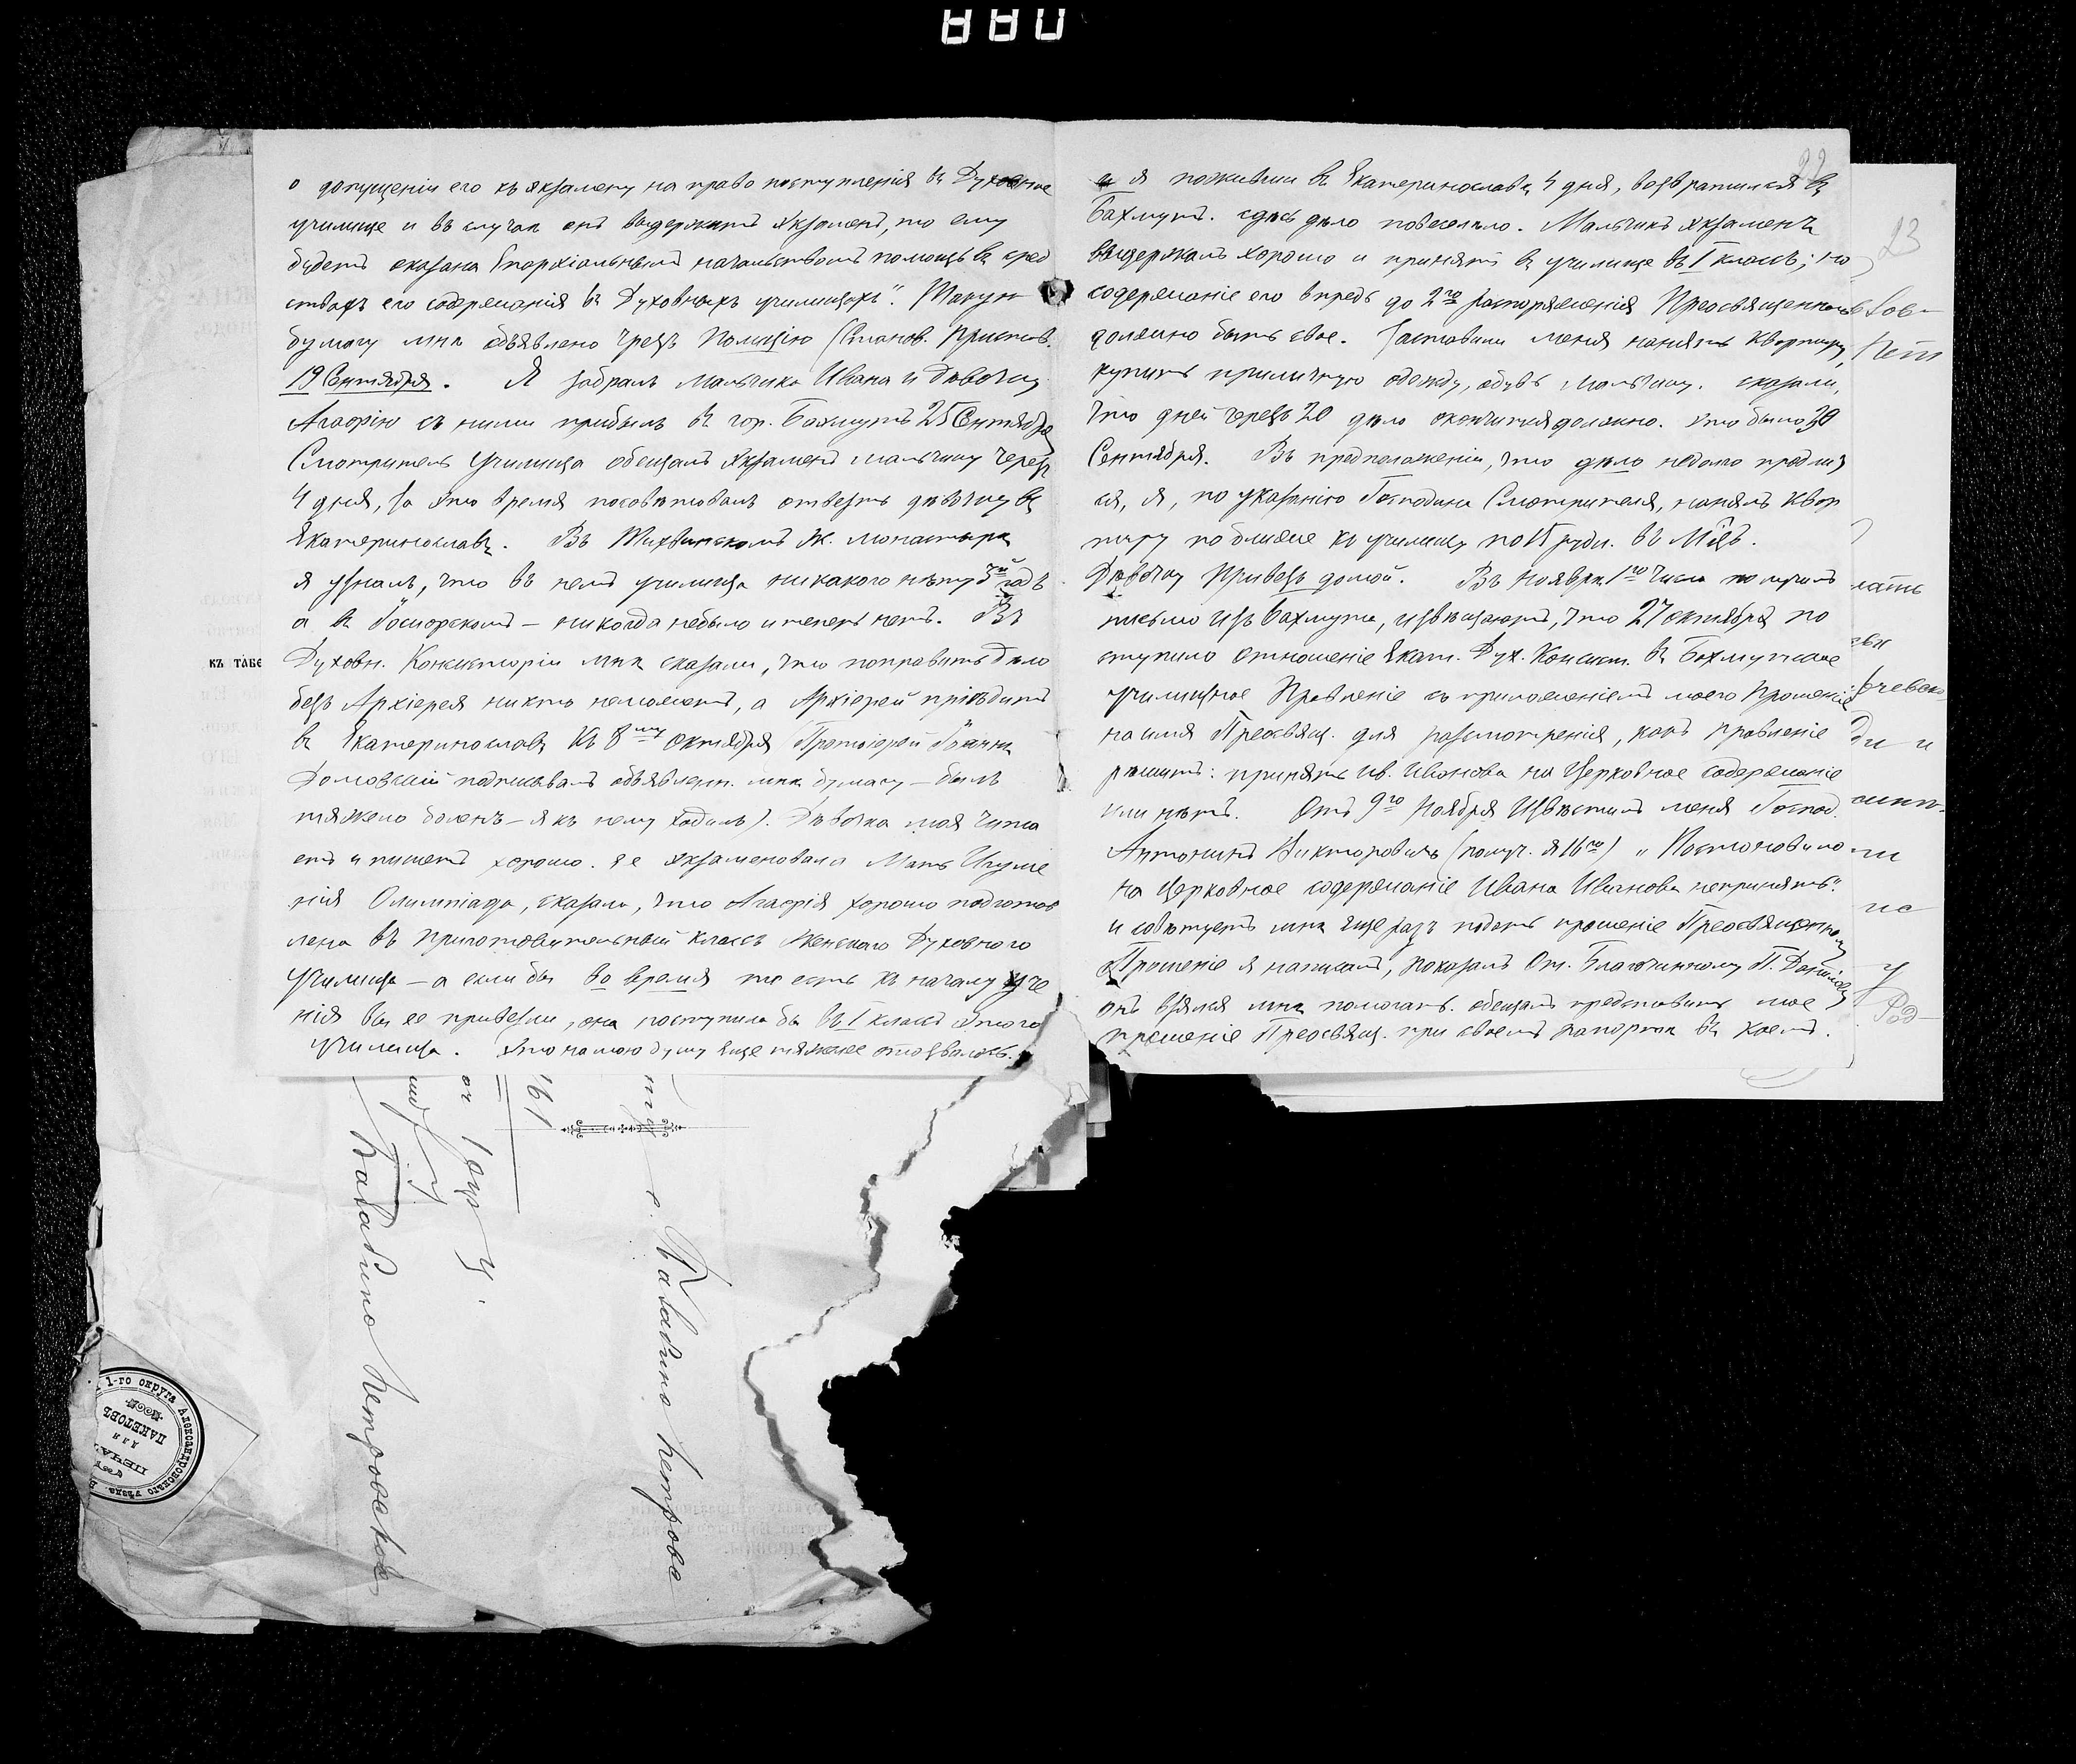 о допущеніи его къ экзамену на право поступленія въ Духовное
училище и въ случаѣ онъ выдержитъ экзаменъ, то ему
будетъ оказана Епархіальнымъ начальствомъ помощь въ сред
ствахъ его содержанія въ Духовныхъ училищахъ". Такую
бумагу мнѣ объявлено чрезъ Полицію (Станов. Пристав.
19 Сентября. Я забралъ мальчика Ивана и дѣвочку
Агафію съ ними прибылъ въ гор. Бахмутъ 25 Сентября
Смотритель Училища обещалъ экзаменъ мальчику черезъ
4 дня, за это время посовѣтовалъ отвезть дѣвочку въ
Екатеринославъ. Въ Тихвинскомъ Ж. монастырѣ
я узналъ, что въ немъ училища никакого нѣту 3й годъ
а въ – никогда небыло и теперь нетъ. Въ
Духовн. Консисторіи мнѣ сказали, что поправить дѣло
безъ Архіерея никто неможетъ, а Архіерей пріѣдитъ
въ Екатеринославъ къ 8му Октября Протоіерей
подписывалъ объявленн. мнѣ бумагу – былъ
тяжело боленъ – я къ нему ходилъ). Дѣвочка моя чита
етъ и пишетъ хорошо. ее экзаменовала Мать Игуме
нія Олимпіада, сказала, что Агафія хорошо подготов
лена въ приготовительный классъ Женскаго Духовнаго
Училища – а если бы во время то есть къ началу уче
нія вы ее привезли, она поступила бы въ I классъ этого
училища. Это на мою душу еще тяжелее отозвалось.
и я поживши въ Екатеринославѣ 4 дня, возвратился въ
Бахмутъ. здѣсь дѣло повеселѣло. Мальчикъ экзаменъ
выдержалъ хорошо и принятъ въ училище въ I классъ; но
содержаніе его впредь до 2го распоряженія Преосвященнаго
должно быть свое. Заставили меня нанять квартиру,
купить приличную одежду, обувь мальчику. сказали,
что дней черезъ 20 дѣло окончится должно. это было 30
Сентября. Въ предположеніи, что дѣло недолго продлит
ся, я, по указанію Господина Смотрителя, нанялъ квар
тиру поближе къ училищу по 15 рубл. въ Мсцъ.
Дѣвочку привезъ домой. Въ Ноябрѣ 1го числа получилъ
письмо изъ Бахмута, извѣщаютъ, что 27 октября по
ступило отношеніе Екат. Дух. Консист. въ Бахмутское
училищное Правленіе съ приложеніемъ моего Прошенія
на имя Преосвящ. для разсмотренія, какъ правленіе
рѣшитъ: принять Ив. Иванова на Церковное содержаніе
или нѣтъ. Отъ 9го Ноября Извѣстилъ меня Господ.
Антонинъ Викторовичъ (получ. я 16го) „Постановило
на Церковное содержаніе Ивана Иванова непринять".
и совѣтуетъ мнѣ еще разъ подать прошеніе Преосвященному
Прошеніе я написалъ, показалъ От. Благочинному П.
онъ взялся мнѣ помогать. обещалъ представить мое
прошеніе Преосвящ. при своемъ рапортѣ въ коемъ.
22
23
къ табе
161
с. Кавадино Петрова
Кавадино Петровской
1-го округа Александровскаго уѣзда
ПЕЧАТЬ
для
ПАКЕТОВЪ